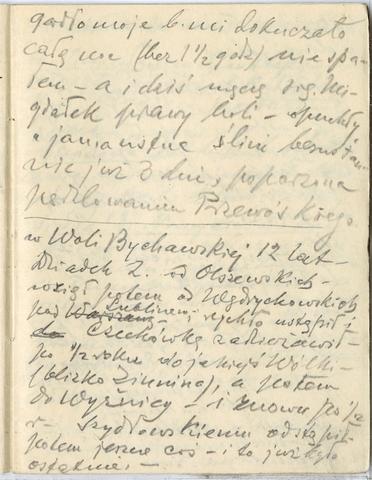 gardło moje b. mi dokuczało
całą noc (bez 1 1/2 godz) nie spa-
łem – a i dziś męczę się. Mi-
gdałek prawy boli – opuchły
i jama ustna ślini bezustan-
nie już 3 dni, poparzona
pędzlowaniem Przewóskiego.
w Woli Bychawskiej 12 lat –
dziadek Z. od Olszewskich –
wziął potem od Wędrychowskich
pod Lublinem – i rychło ustąpił i
Czechówkę zadzierżawił –
po 1/2 roku do jakiejś Wólki
(blizko Zimnina), a potem
do Wyżnicy – i znowu po 1/2
r – Szydłowskiemu odstąpił
potem jeszcze coś – i to już było
ostatnie. –